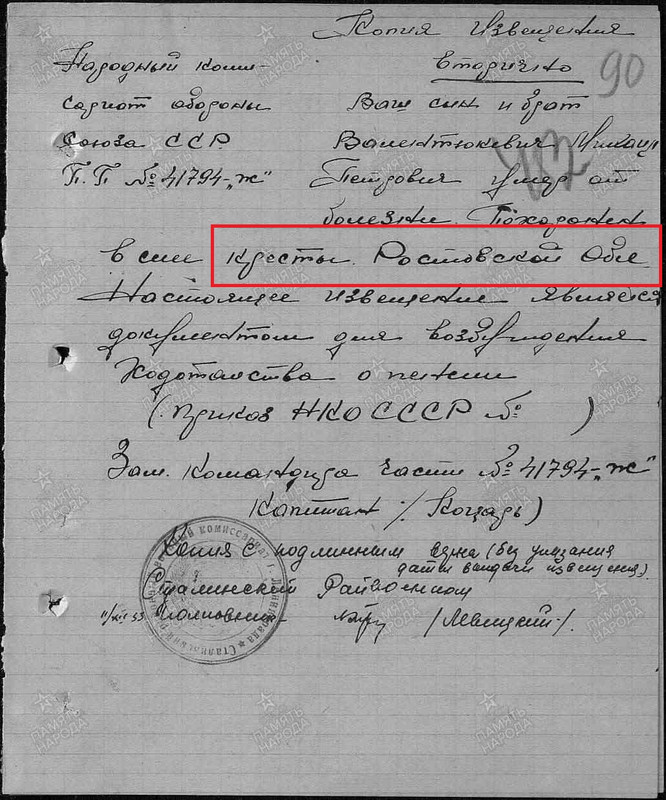 Копия Извещения
90
Народный коми-
сариат обороны
Союза ССР
П.П № 41794-„ж"
вторично
Ваш сын и брат
Валентюкевич
Петрович умер от
болезни. Похоронен
в селе Кресты. Ростовской Обл
Настоящее извещение является
документом для возбуждения
Ходотайства о пенсии
(приказ НКО СССР № )
Зам. Командира части № 41794-„ж"
Капитан /Коцарь)
Копия с подлинным верна (без указания
даты выдачи извещения).
Сталинский Райвоенком
Полковник /Левицкий/.
ПАМЯТЬ НАРОДА